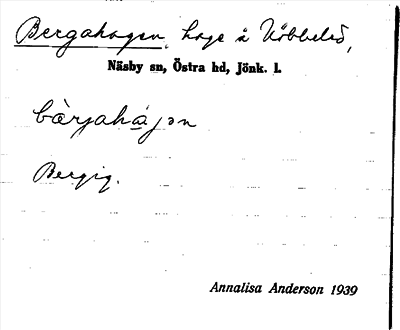 Bergahagen, hage å Vibbeled,
Näsby sn, Östra hd, Jönk. l.
bærjahájən
Bergig.
Annalisa Anderson 1939